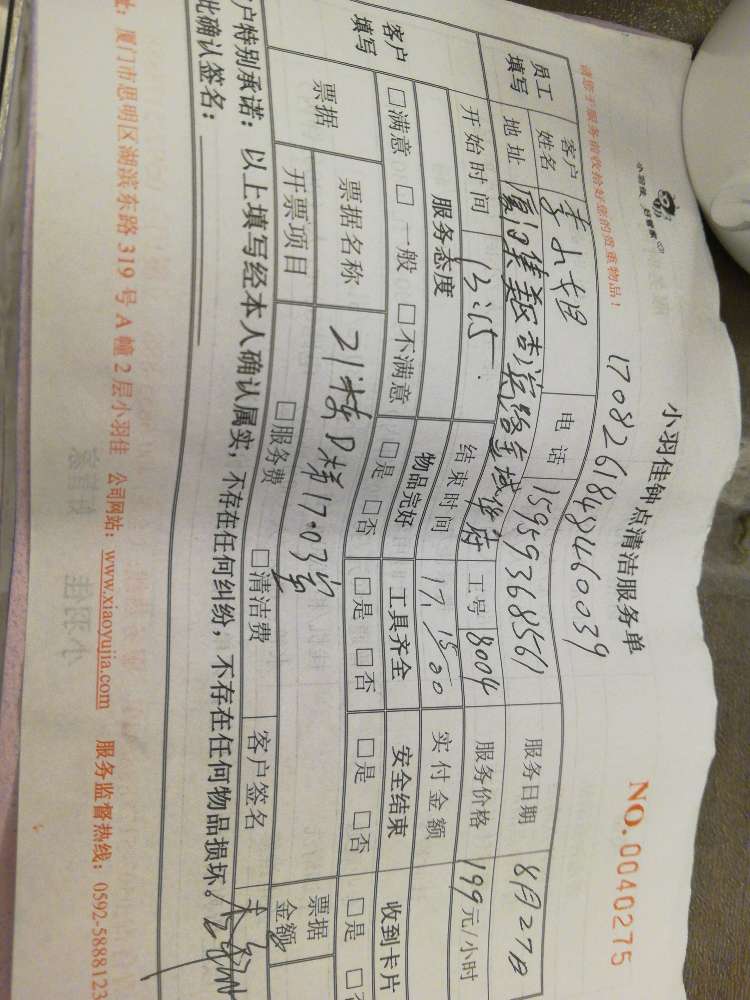 小羽佳 好管家
小羽佳钟点清洁服务单
NO.0040275
请您于服务前收拾好您的贵重物品!
员工填写 客户姓名 李小姐 电话 15959368561 服务日期 8月27日
地址 工号 8004 服务价格 199元/小时
开始时间 结束时间 实付金额
客户填写 服务态度 物品完好 工具齐全 安全结束 收到卡片
□满意 □一般 □不满意 □是 □否 □是 □否 □是 □否 □是
票据 票据名称 21楼D梯17.03室 票据金额
开票项目 □服务费 □清洁费 客户签名
户特别承诺:以上填写经本人确认属实,不存在任何纠纷,不存在任何物品损坏。
此确认签名:
址:厦门市思明区湖滨东路319号A幢2层小羽佳 公司网站:www.xiaoyujia.com 服务监督热线:0592-5888123